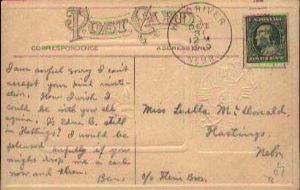 POST CARD
CORRESPONDENCE
ADDRESS
WOOD RIVER
OCT
NEBR.
I am awful sorry I can't
accept your kind invit-
ation. How I wish I
could be with you all
again. Is Edna C. still
in Hastings? I would be
pleased awfully if you
might drop me a card
now and then.
Ben.
Miss Luella McDonald,
Hastings,
Nebr
c/o Stein Bros.